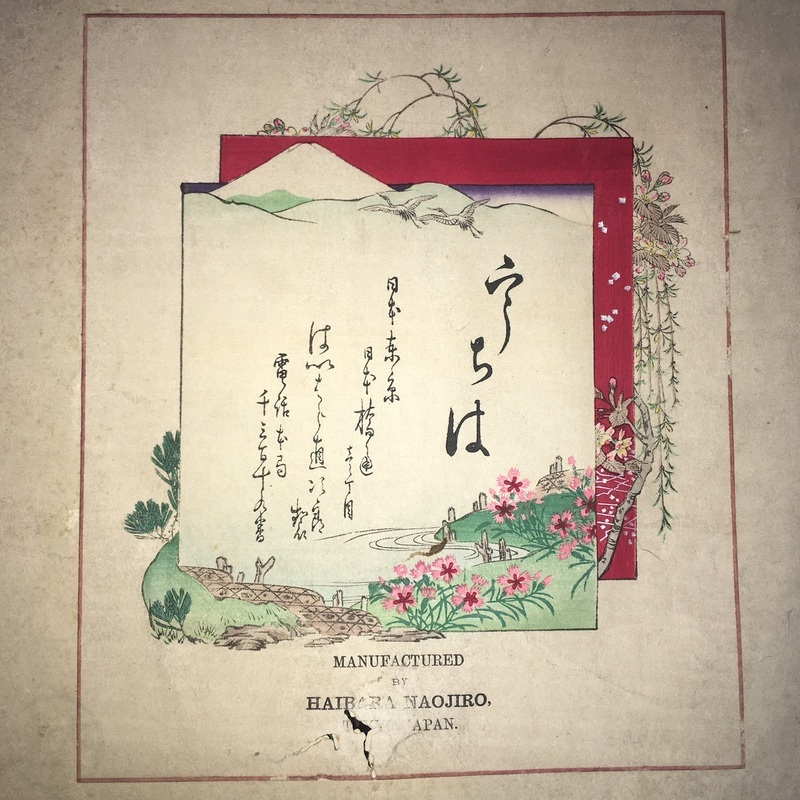 うちは
日本東京
日本橋通 丁目
はいばら直次郎
製
電話本局
千三百十 番
MANUFACTURED
BY
HAIBARA NAOJIRO,
TOKYO JAPAN.